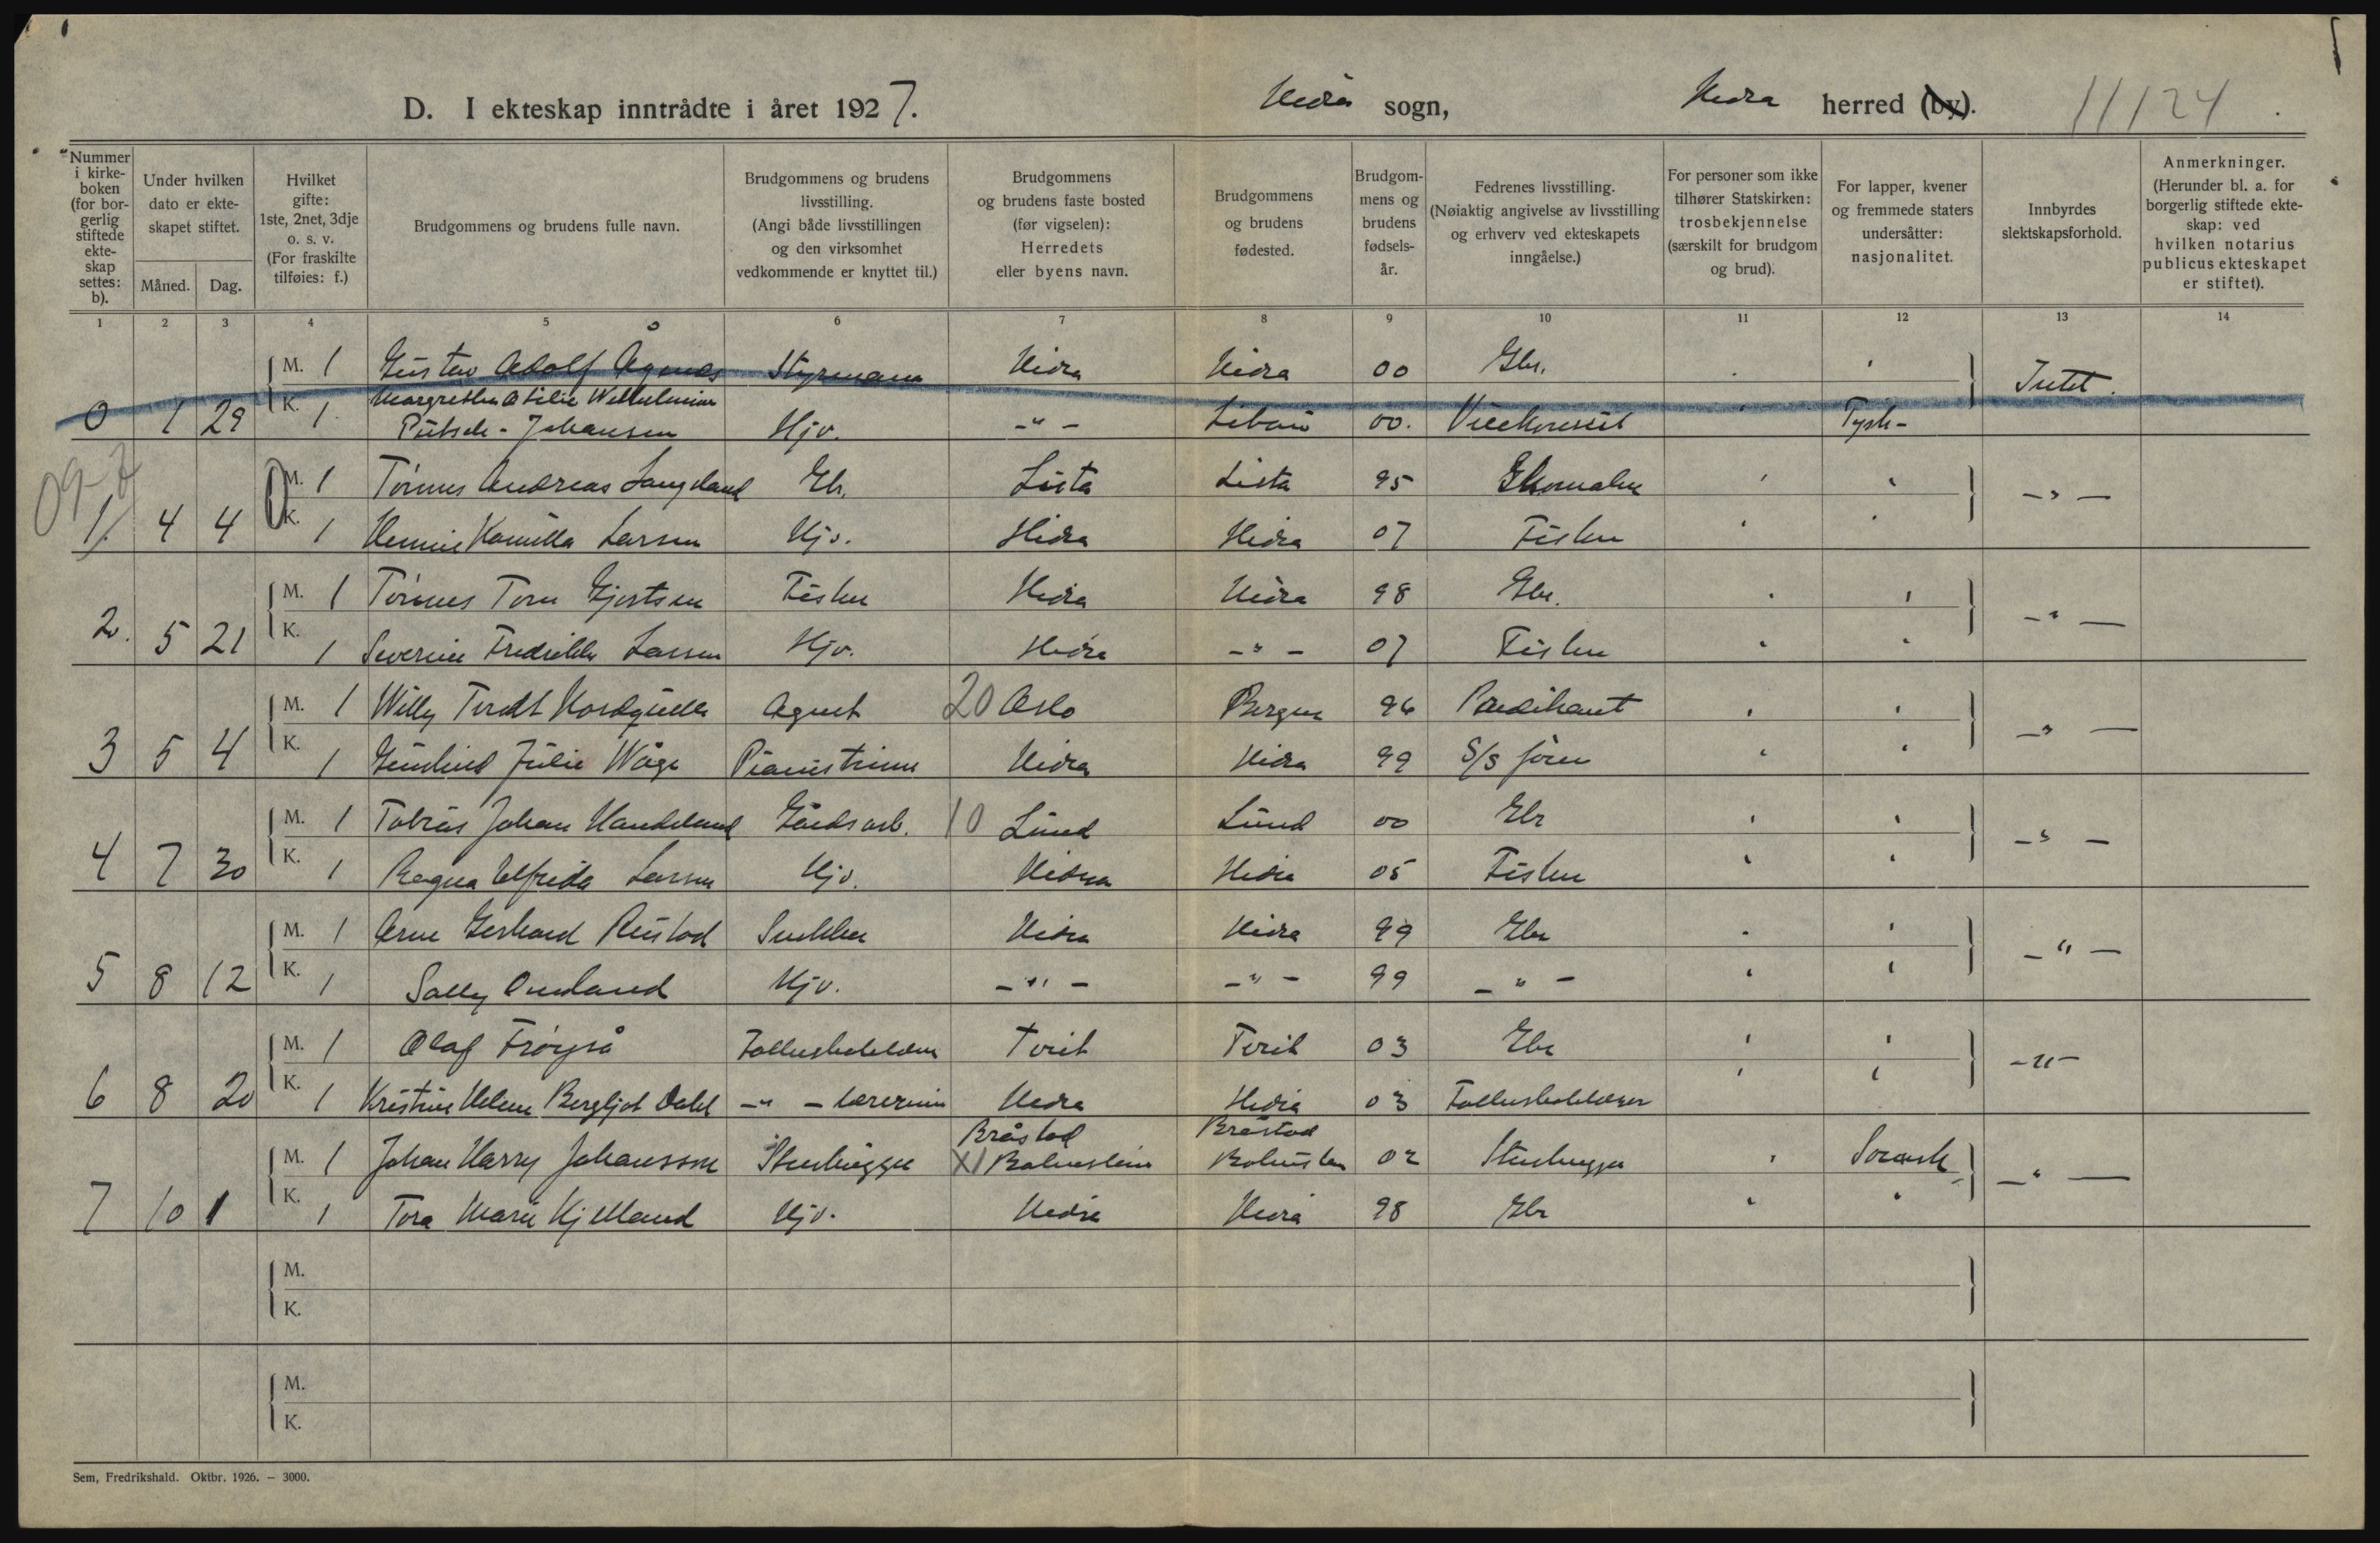 D. I ekteskap inntrådte i året 1927. Hidra sogn, Hidra herred (by). 11124
Nummer i kirkeboken (for borgerlig stiftede ekteskap settes: b).
Under hvilken dato er ekteskapet stiftet.
Måned. Dag.
Hvilket gifte: 1ste, 2net, 3dje o. s. v. (For fraskilte tilføies: f.)
Brudgommens og brudens fulle navn.
Brudgommens og brudens livsstilling. (Angi både livsstillingen og den virksomhet vedkommende er knyttet til.)
Brudgommens og brudens faste bosted (før vigselen): Herredets eller byens navn.
Brudgommens og brudens fødested.
Brudgommens og brudens fødselsår.
Fedrenes livsstilling. (Nøiaktig angivelse av livsstilling og erhverv ved ekteskapets inngåelse.)
For personer som ikke tilhører Statskirken: trosbekjennelse (særskilt for brudgom og brud).
For lapper, kvener og fremmede staters undersåtter: nasjonalitet.
Innbyrdes slektskapsforhold.
Anmerkninger. (Herunder bl. a. for borgerlig stiftede ekteskap: ved hvilken notarius publicus ekteskapet er stiftet).
1 2 3 4 5 6 7 8 9 10 11 12 13 14
M. 1 Gustav Adolf Agnæs Styrmann Hidra Hidra 00 Gbr. Intet.
0 1 29 K. 1 Margrethe Otilie Wilhelmine
Pütsch-Johansen Hjv. -"- Libau 00. Visekonsul Tysk-
M. 1 Tönnes Andreas Langeland Gbr. Lista Lista 95 Skomaker -"-
1 4 4 K. 1 Kamilla Larsen Hjv. Hidra Hidra 07 Fisker
M. 1 Tönnes Tom Gjertsen Fisker Hidra Hidra 98 Gbr. -"-
2. 5 21 K. 1 Severine Fredrikke Larsen Hjv. Hidra -"- 07 Fisker
M. 1 Willy Agent 20 Oslo Bergen 96 Predikant -"-
3 5 4 K. 1 Julie Våge Pianistinne Hidra Hidra 99 S/S fører
M. 1 Tobias Johan Handeland Gårdsarb. 10 Lund Lund 00 Gbr -"-
4 7 30 K. 1 Ragna Alfrida Larsen Hjv. Hidra Hidra 05 Fisker
M. 1 Arne Gerhard Rustad Snekker Hidra Hidra 99 Gbr -"-
5 8 12 K. 1 Sally Omland Hjv. -"- -"- 99 -"-
M. 1 Olaf Frøyså Folkeskolelærer Tveit Tveit 03 Gbr -"-
6 8 20 K. 1 Kristine Helene Bergljot Dahl -"- lærerinne Hidra Hidra 03 Folkeskolelærer
Bråstad Bråstad
M. 1 Johan Harry Johansson Stenhugger XI Bohuslen Bohuslen 02 Stenhugger Svensk -"-
7 10 1 K. 1 Tora Marie Kjelland Hjv. Hidra Hidra 98 Gbr
M.
K.
M.
K.
Sem, Fredrikshald. Oktbr. 1926. – 3000.